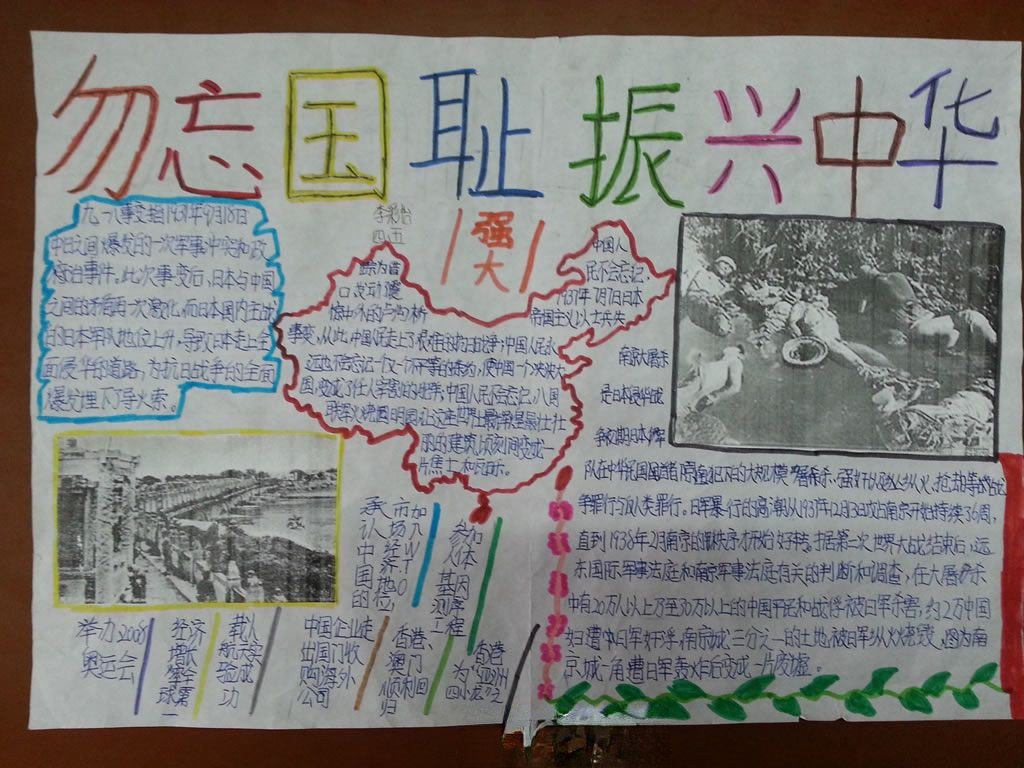 勿忘国耻 振兴中华
李彩怡
四、五
强
大
九一八事变指1931年9月18日
中日之间爆发的一次军事冲突和政
治事件。此次事变后,日本与中国
之间的矛盾再一次激化,而日本国内主战
的日本军队地位上升,导致日本走上全
面侵华的道路,为抗日战争的全面
爆发埋下了导火索。
中国人
民不会忘记,
1937年7月7日日本
帝国主义以士兵失
踪为借
口发动震
惊中外的卢沟桥
事变,从此,中国人民永
远也不会忘记一个又一个不平等的条约,使中国一个泱泱大
国变成了任人宰割的
中国人民不会忘记,八国
联军火烧圆明园,让这座世界上最
的建筑顷刻间变成一
片焦土和瓦砾。
南京大屠杀
是日本侵华战
争初期日本军
队在中华民国首都南京犯下的大规模屠杀、强奸以及纵火、抢劫等战
争罪行与反人类罪行。日军暴行的高潮从1937年12月13日攻占南京开始持续6周,
直到1938年2月南京的秩序才开始好转。据第二次世界大战结束后,远
东国际军事法庭和南京军事法庭有关的判决和调查,在大屠杀
中有20万人以上乃至30万以上的中国平民和战俘被日军杀害,约2万中国
妇女遭日军奸淫,南京城三分之一的土地被日军纵火烧毁。图为南
京城一角遭日军轰炸后变成一片废墟。
举办2008
奥运会
经济
增长
全
球第
一
载人
航天实
验成
功
中国企业走
出国门收
购海外
公司
承认中国的
市场经济地位,
加入WTO
香港、
澳门
顺利回
归
参加
人体
基因
测序
工程
香港
为“亚洲
四小龙”之